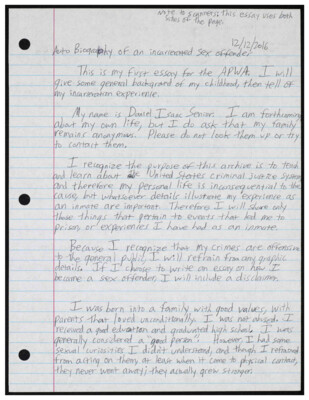 Note to scanners: This essay uses both
sides of the page.
12/12/2016
Auto Biography of an incarcerated sex offender.
This is my first essay for the APWA. I will
give some general background of my childhood, then tell of
my incarceration experience.
My name is Daniel Isaac Senior. I am forthcoming
about my own life, but I do ask that my family
remains anonymous. Please do not look them up or try
to contact them.
I recognize the purpose of this archive is to teach
and learn about the United States criminal Justice System
and therefore my personal life is inconsequential to the
cause, but whatsoever details illustrate my experience as
an inmate are important. Therefore I will share only
those things that pertain to events that led me to
prison, or experiences I have had as an inmate.
Because I recognize that my crimes are offensive
to the general public, I will refrain from any graphic
details. If I choose to write an essay on how I
became a sex offender I will include a disclaimer.
I was born into a family with good values, with
parents that loved unconditionally. I was not abused. I
received a good education and graduated high school. I was
generally considered a "good person". However, I had some
sexual curiosities I didn't understand, and though I refrained
from acting on them, at least when it came to physical contact,
they never went away; they actually grew stronger.